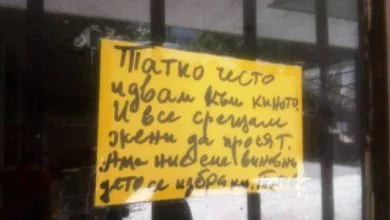 Татко често
идвам към киното.
И все срещам
жени да просят.
Ама ние сме виновни
дето се